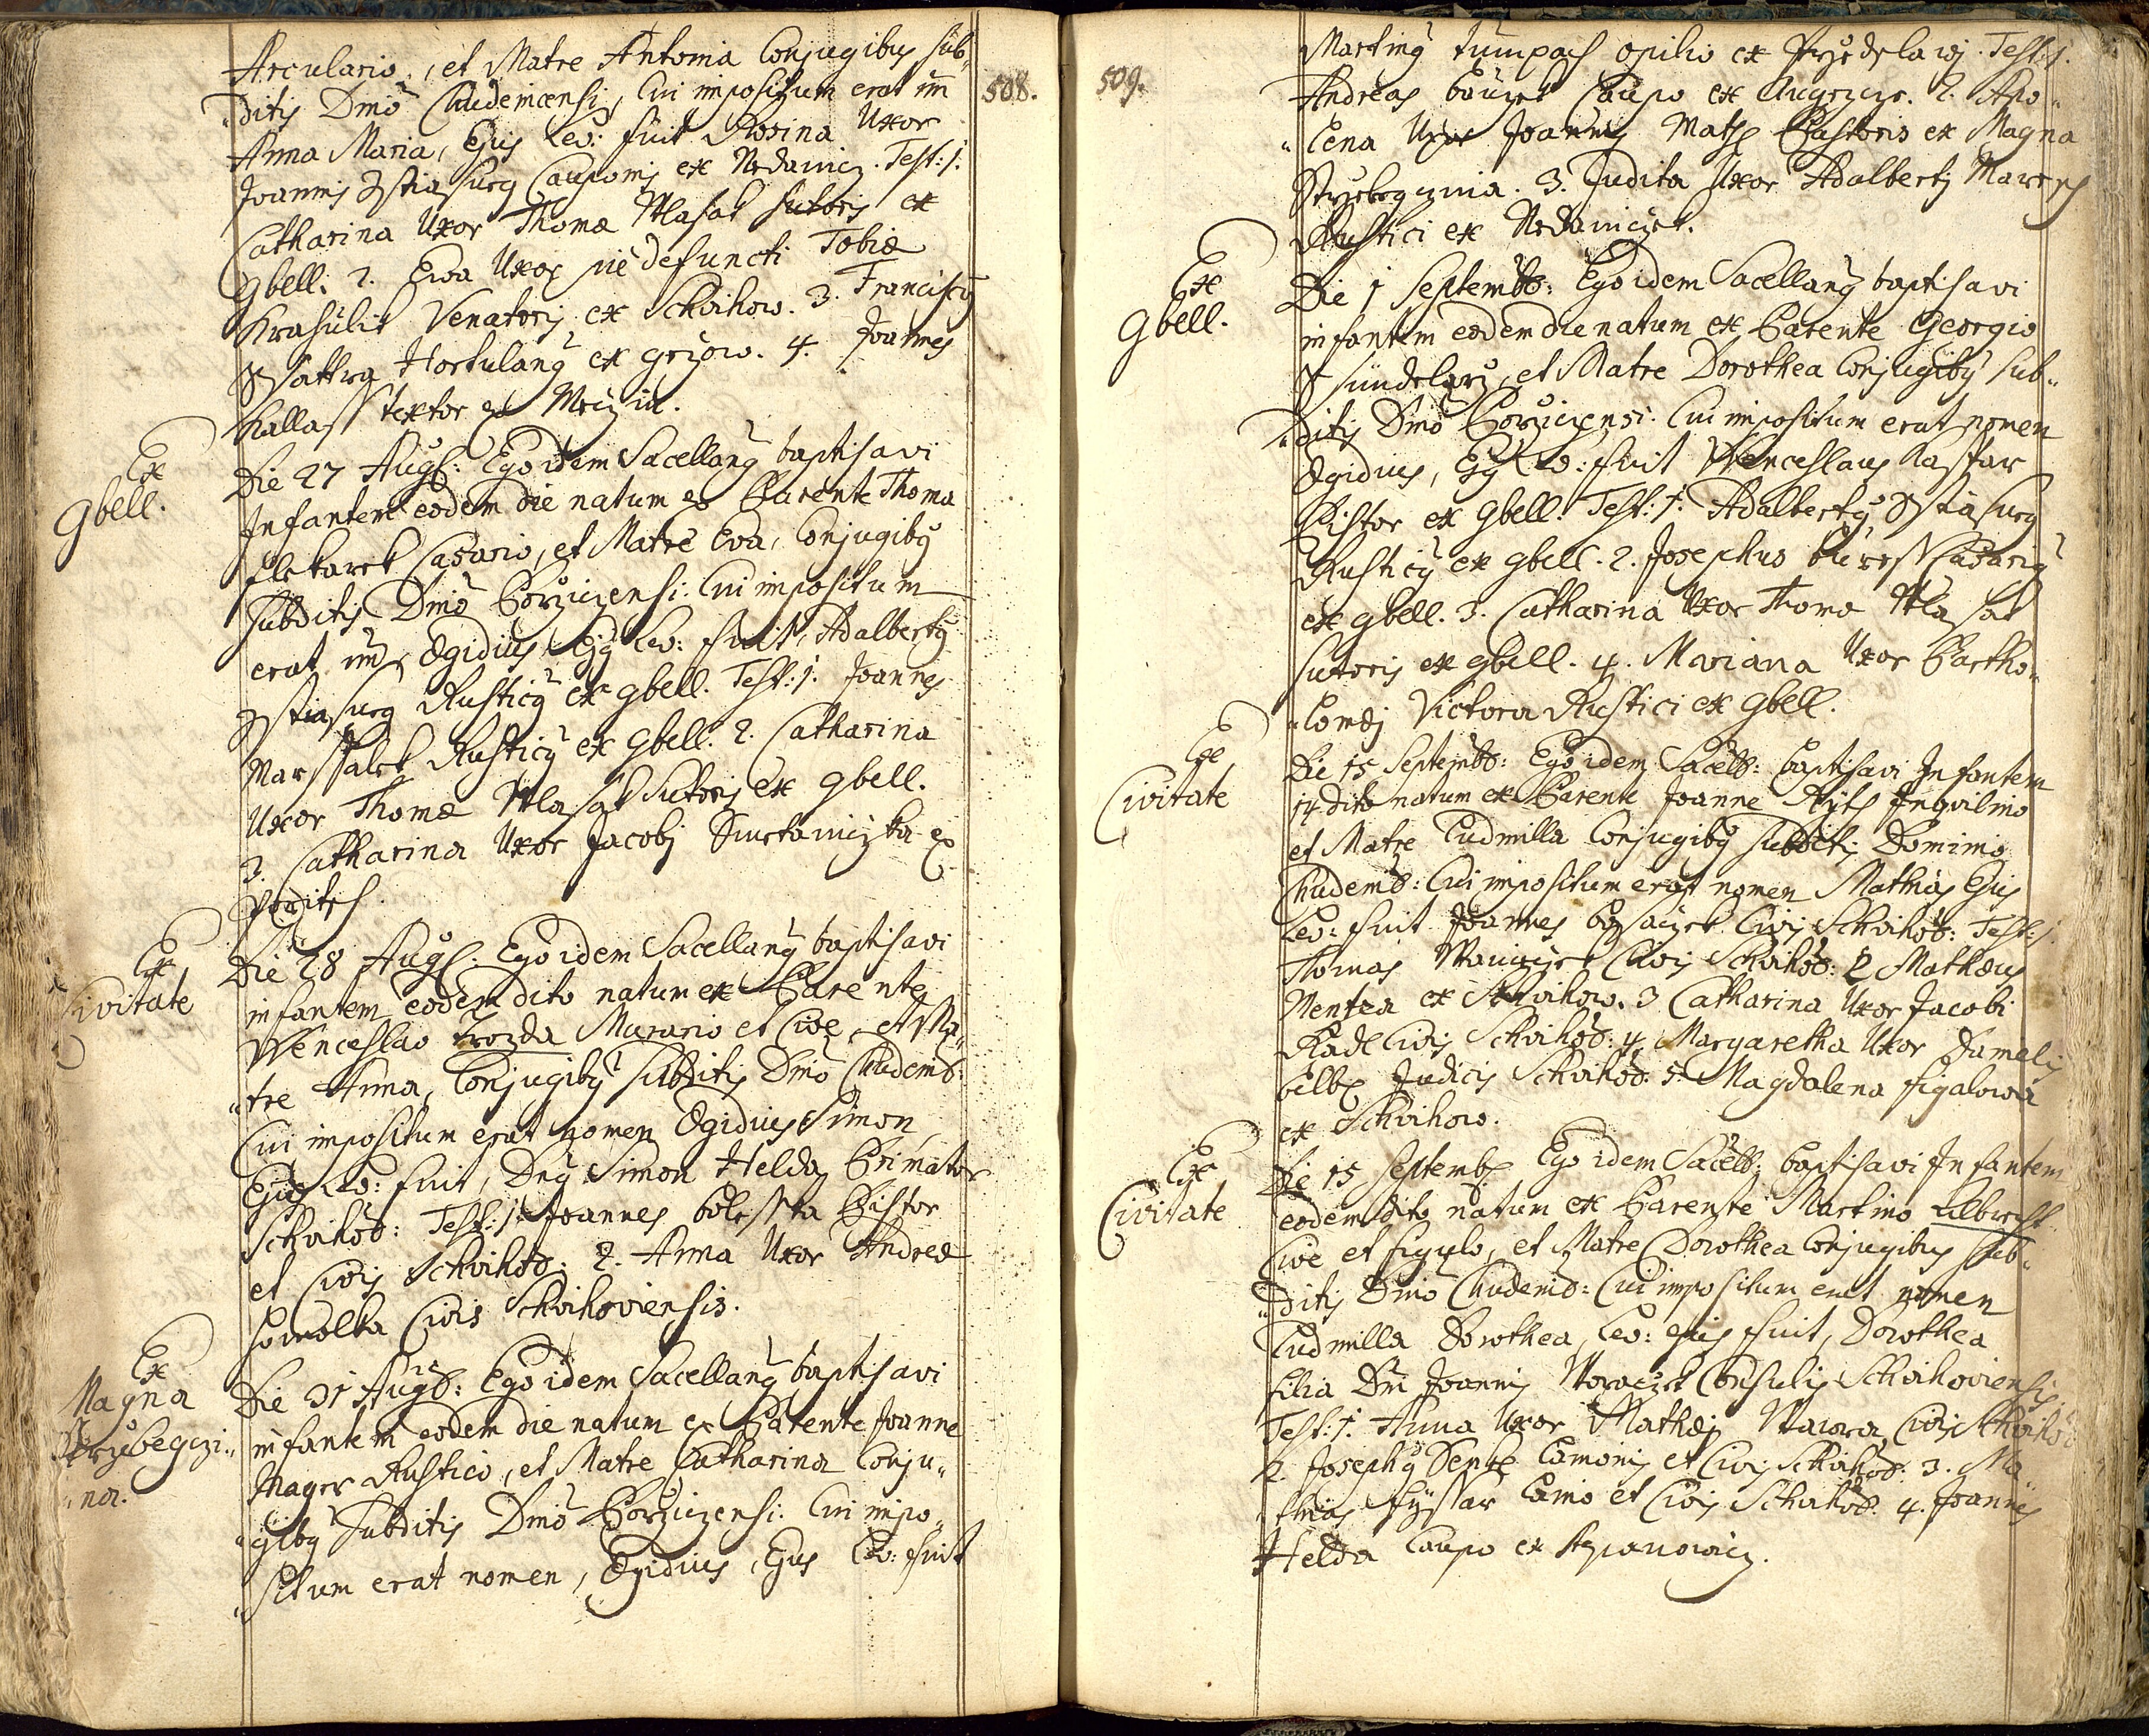 508.
Arculario, et Matre Antonia Conjugibus sub„
„ditis Dmō Chudenicensi, Cui impositum erat nm̄
Anna Maria, Ejus Lev: fuit Rosina Uxor
Joannis Caupomis ex Nedanicz. Test: 1.
Catharina Uxor Thomæ Wlasak sutoris ex
Gbell: 2. Ewa Uxor pie defuncti Tobiæ
Krasulik Venatoris ex Schvihow. 3. Franciscq
Wattra Hortulanq ex Grzow. 4. Joannes
Kallass textor ex
Ex
Gbell.
Die 27 Augs: Ego idem Sacellanq baptisavi
Infantem eodem die natum ex Parente Thoma
Casario, et Matre Eva, Conjugibq
subditis Dmō Borziczensi: Cui impositum
erat nm̄ Ægidius, Ejq Lev: fuit, Adalbertq
Rusticq ex Gbell. Test: 1. Joannes
Marssalek Rusticq ex Gbell. 2. Catharina
Uxor Thomæ Wlasak Sutoris ex Gbell.
3. Catharina Uxor Jacobj ex
Poritsch.
Ex
Civitate
Die 28 Augs: Ego idem Sacellanq baptisavi
infantem eodem dito natum ex Parente
Wenceslao Trozda Murario et Cive, et Ma„
„tre Anna, Conjugibq subditis Dmō Chudenib:
Cui impositum erat nomen Ægidius Simon,
Ejus Lev: fuit, Dnq Simon Helda Primator
Schvihob: Test: 1. Joannes Bolesska Pistor
et Civis Schvihob: 2. Anna Uxor Andreæ
Homolka Civis Schvihoviensis.
Ex
Magna
Strzebegczi„
„na.
Die 31 Augb: Ego idem Sacellanq baptisavi
infantem eodem die natum ex Parente Joanne
Mager Rustico, et Matre Catharina Conju„
„gibq Subditis Dmō Borziczensi: Cui impo„
„situm erat nomen, Ægidius, Ejus Lev: fuit
509.
Martinq Tumpach opilio ex Test: 1.
Andreas Caupo ex 2. Apo„
„lena Uxor Joannis Pastoris ex Magna
Strzebegczina. 3. Judita Uxor Adalbertj Maressch
Rustici ex Nedaniczek.
Ex
Gbell.
Die 1 Septembb: Ego idem Sacellanq baptisavi
infantem eodem die natum ex Parente Georgio
Ssindelarz, et Matre Dorothea Conjugibq sub„
„ditis Dmō Borziczensi: Cui impositum erat nomen
Ægidius, Ejq Lev: fuit Wenceslaus Kasspar
Pistor ex Gbell. Test: 1. Adalbertq
Rusticq ex Gbell. 2. Josephus Buress Casariq
ex Gbell. 3. Catharina Uxor Thomæ Wlasak
sutoris ex Gbell. 4. Mariana Uxor Bartho„
„lomæj Victora Rustici ex Gbell.
Ex
Civitate
Die 15 Septembb: Ego idem Sacelb: baptisavi Infantem
14 dito natum ex Parente Joanne Inqvilino
et Matre Ludmilla Conjugibq subditis Dominio
Chudenib: Cui impositum erat nomen Mathias Ejus
Lev: fuit Joannes Civis Schvihob: Test: 1.
Thomas Civis Schvihob: 2 Mathæus
Mentza ex Schvihow. 3 Catharina Uxor Jacobi
Kadl Civis Schvihob: 4. Margaretha Uxor Danielis
Judicis Schvihob: 5. Magdalena Figalowa
ex Schvihow.
Ex
Civitate
Die 15 Septemb Ego idem Sacelb: baptisavi Infantem
eodem dito natum ex Parente Martino Albrecht
Cive et figulo, et Matre Dorothea Conjugibus sub„
„ditis Dmō Chudenib: Cui impositum erat nomen
Ludmilla Dorothea, Lev: ejus fuit, Dorothea
filia Dni Joannis Woraczek Consulis Schvihoviensis,
Test: 1. Anna Uxor Mathæj Wawra Civis Schvihob
2. Josephq Lamonis et Civis Schvihob: 3. Ma„
„thias Fyssar Lanio et Civis Schvihob: 4. Joannes
Helda Caupo ex